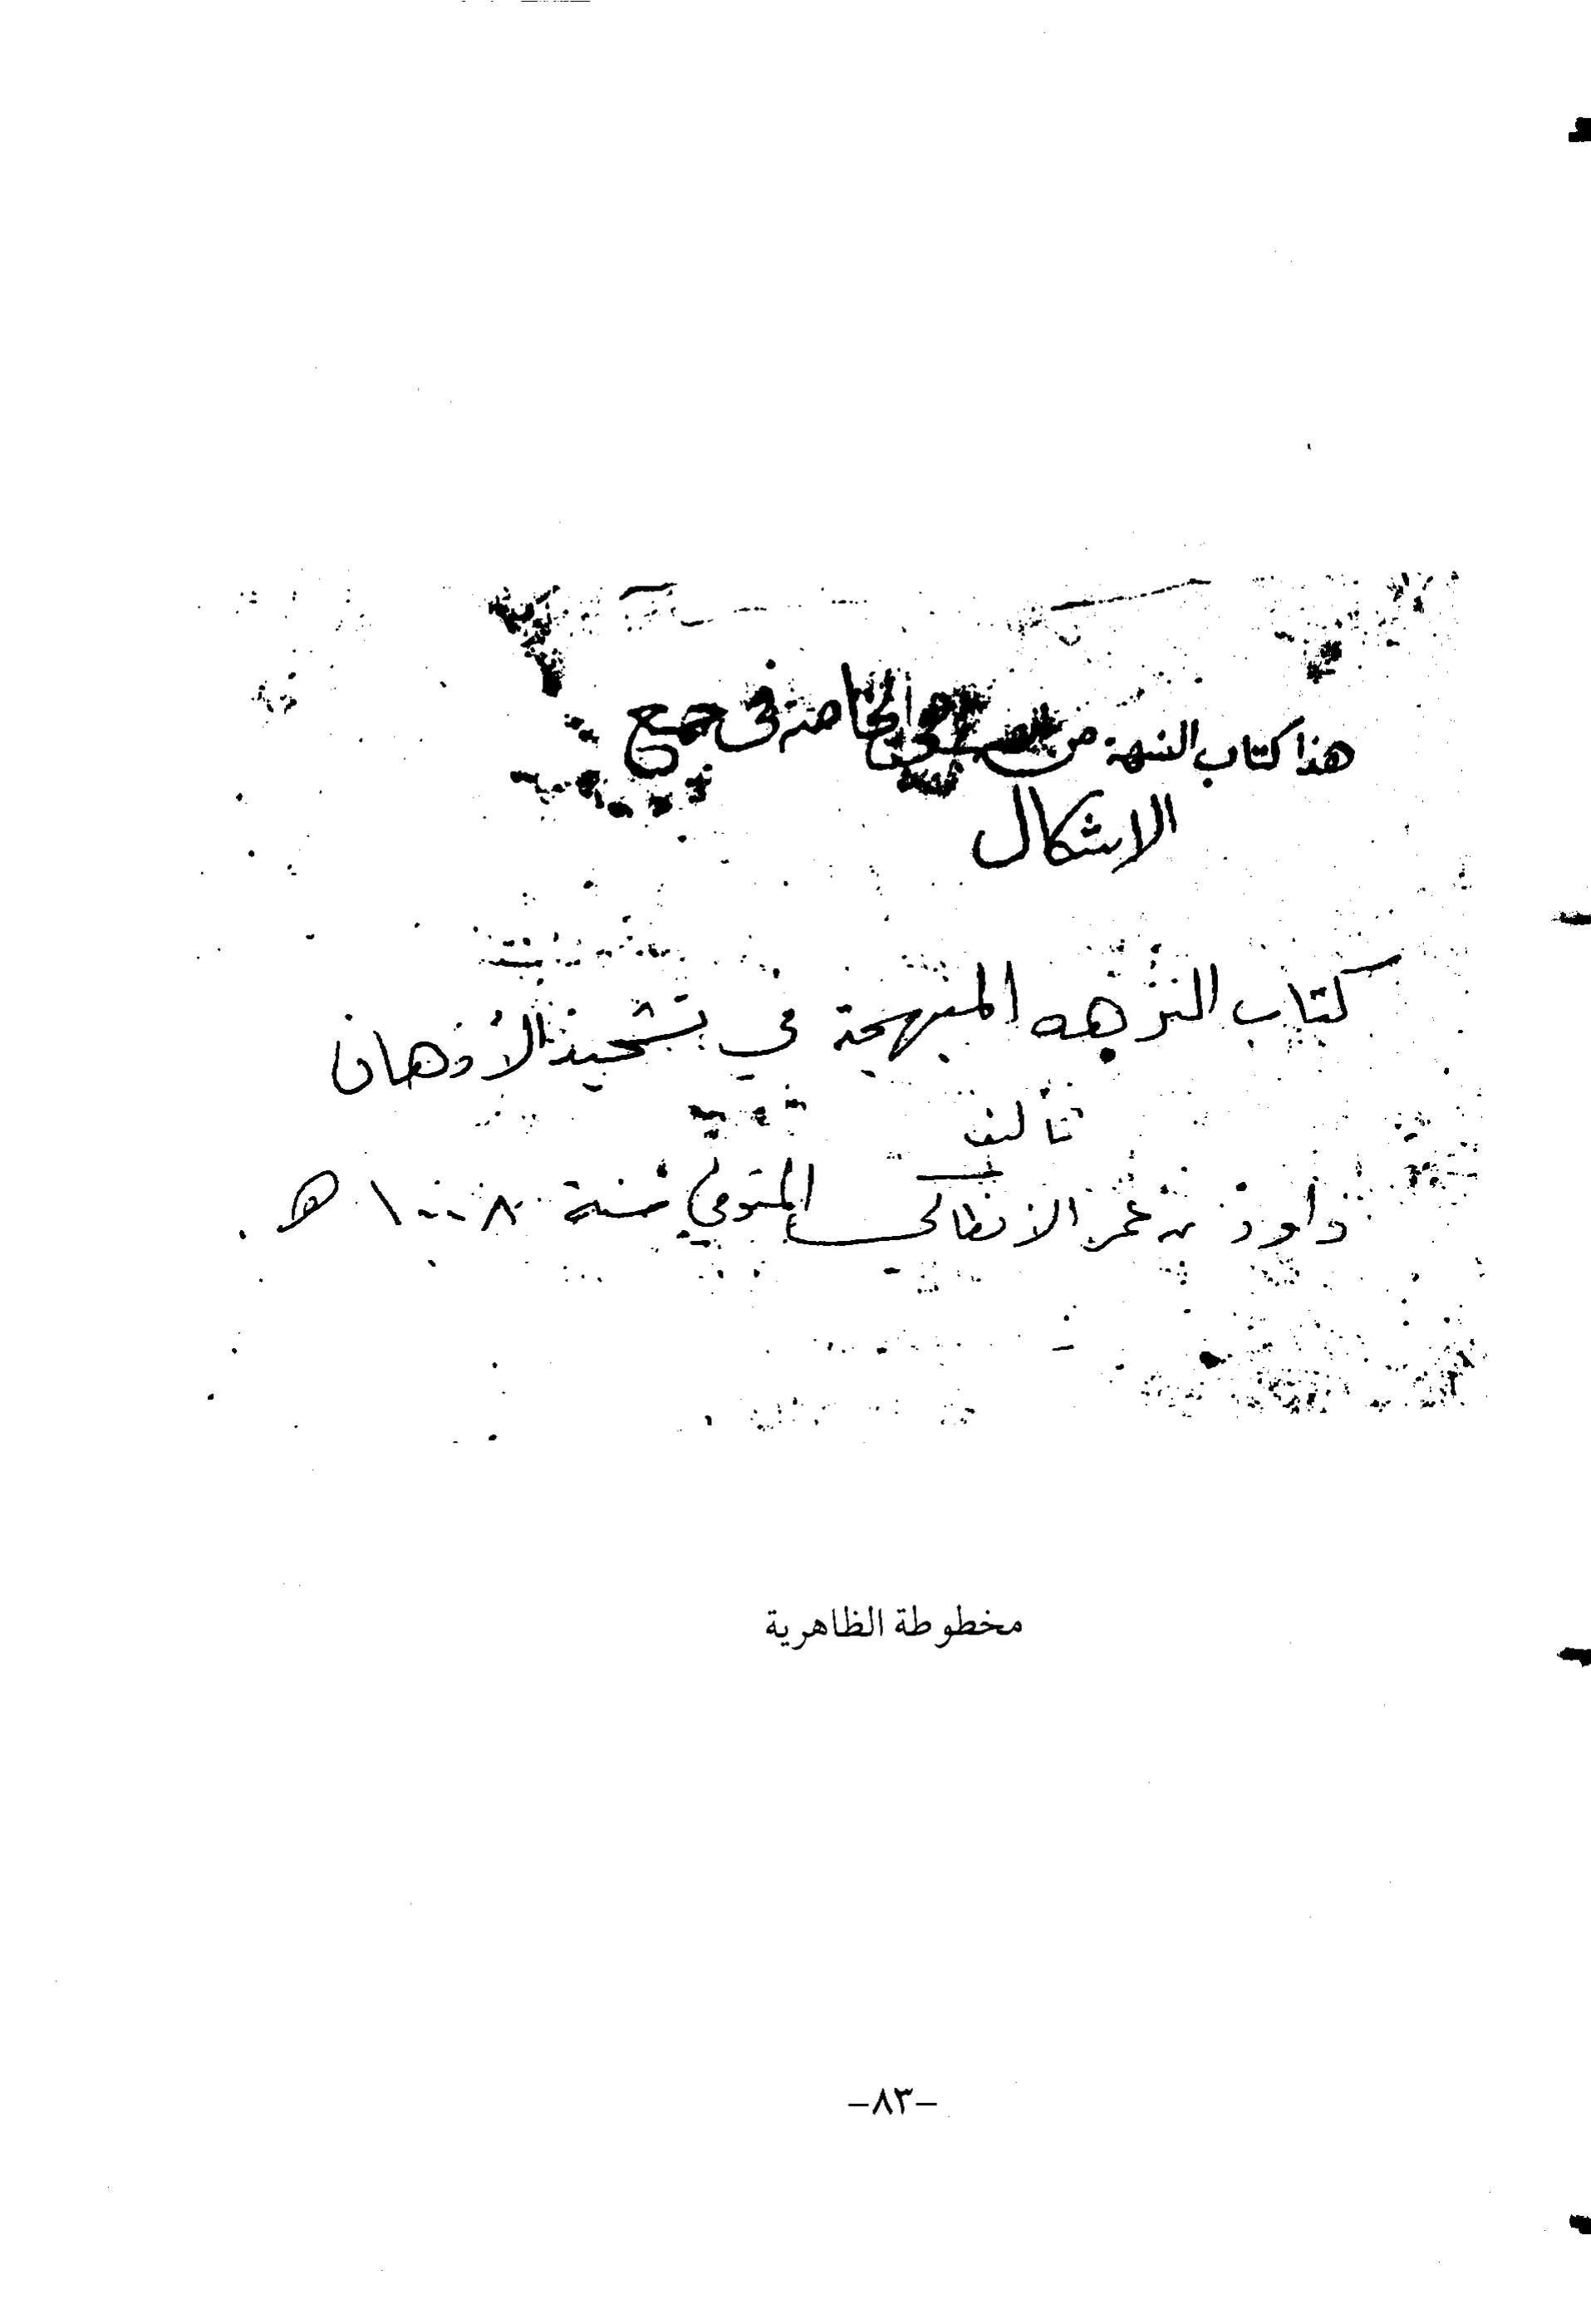 هذا كتاب النبهة من الخاصة فى جمع
الاشكال
كتاب النزهه المبهجة في تشحيذ الأذهان
تأليف
داود بن عمر الانطاكي المتوفي سنة ١٠٠٨ هـ .
مخطوطة الظاهرية
-٨٣-